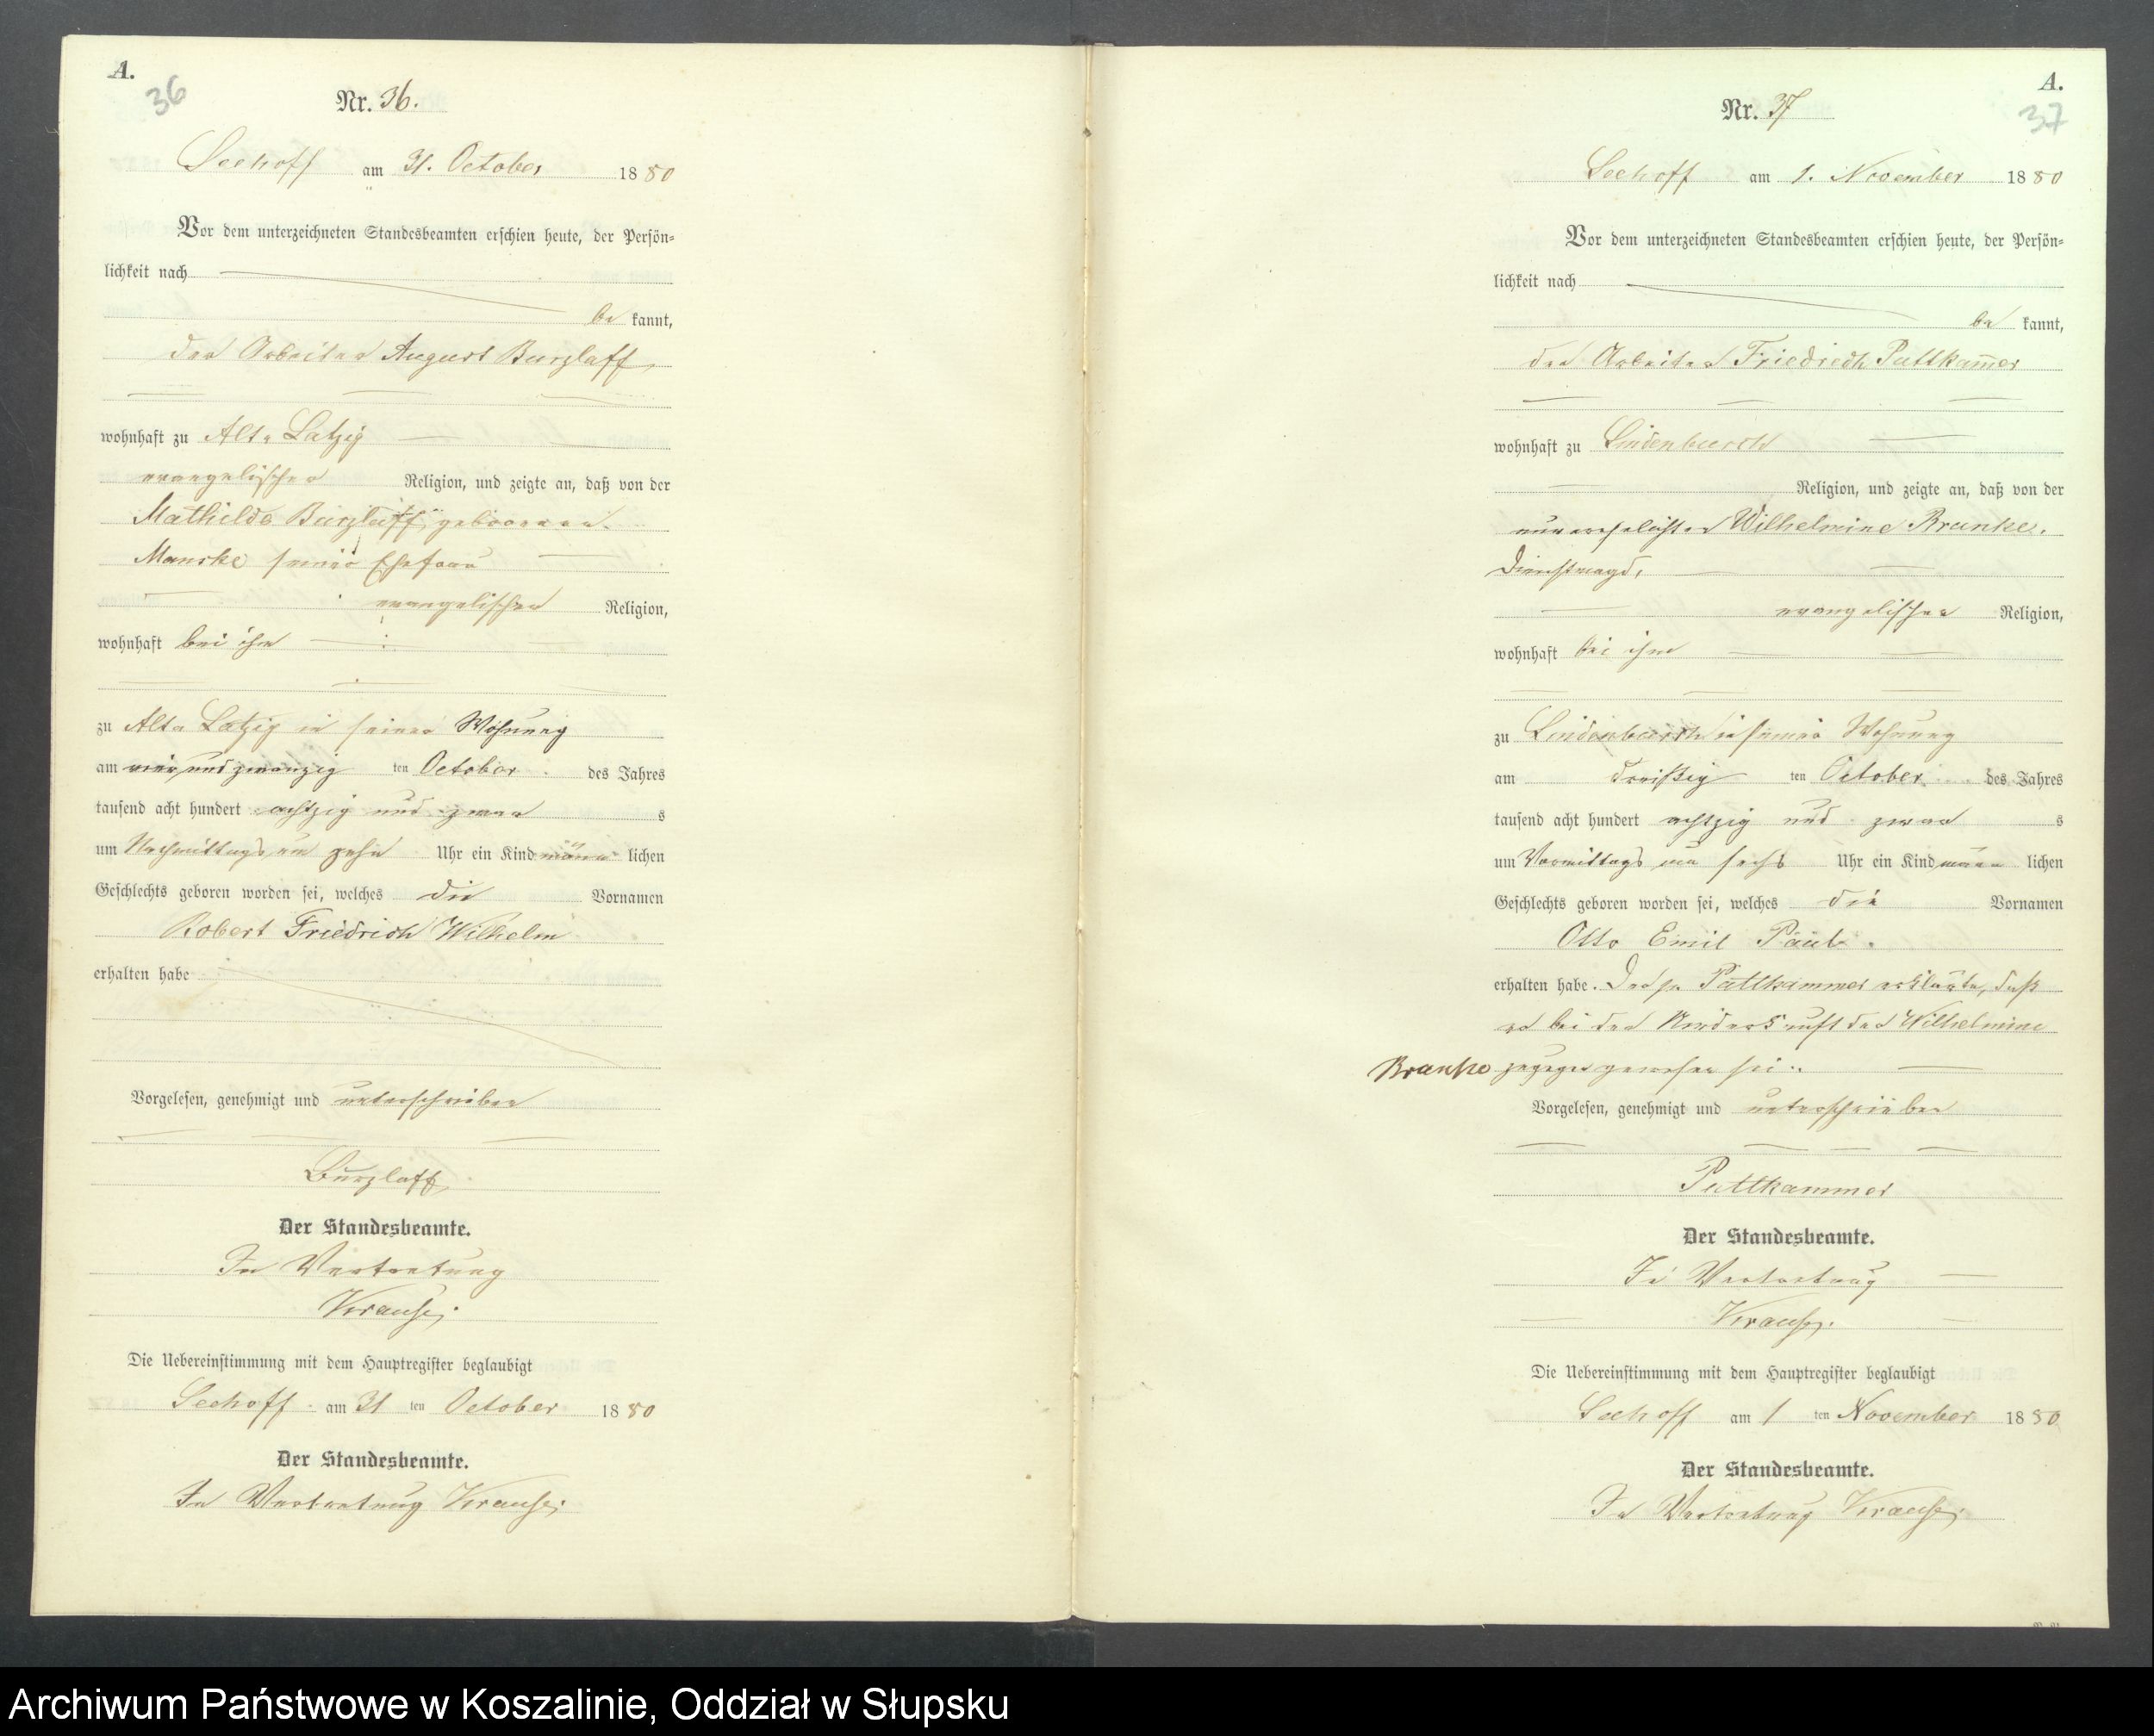 A.
36
Nr. 36.
Seehoff am 31. October 1880
Vor dem unterzeichneten Standesbeamten erschien heute, der Persön=
lichkeit nach
be kannt,
der Arbeiter August Burzlaff
wohnhaft zu Alt Latzig
evangelischer Religion, und zeigte an, daß von der
Mathilde Burzlaff geborenen
Manske seiner Ehefrau
evangelischer Religion,
wohnhaft bei ihm
zu Alt Latzig in seiner Wohnung
am vier und zwanzig ten October des Jahres
tausend acht hundert achtzig und zwar s
um Nachmittags um zehn Uhr ein Kind männ lichen
Geschlechts geboren worden sei, welches die Vornamen
Robert Friedrich Wilhelm
erhalten habe
Vorgelesen, genehmigt und unterschrieben
Burzlaff
Der Standesbeamte.
In Vertretung
Krause.
Die Uebereinstimmung mit dem Hauptregister beglaubigt
Seehoff am 31 ten October 1880
Der Standesbeamte.
In Vertretung Krause.
A.
37
Nr. 37
Seehoff am 1. November 1880
Vor dem unterzeichneten Standesbeamten erschien heute, der Persön=
lichkeit nach
be kannt,
der Arbeiter Friedrich Puttkam̅er
wohnhaft zu Lindenbusch
Religion, und zeigte an, daß von der
unverehelichten Wilhelmine Branke.
Dienstmagd,
evangelischer Religion,
wohnhaft bei ihm
zu Lindenbusch in seiner Wohnung
am dreißig ten October des Jahres
tausend acht hundert achtzig und zwar s
um Vormittags um sechs Uhr ein Kind männ lichen
Geschlechts geboren worden sei, welches die Vornamen
Otto Emil Paul.
erhalten habe. Der Puttkammer erklärte, daß
er bei der Niederkunft der Wilhelmine
Branke zugegen gewesen sei.
Vorgelesen, genehmigt und unterschrieben
Puttkammer
Der Standesbeamte.
In Vertretung
Krause.
Die Uebereinstimmung mit dem Hauptregister beglaubigt
Seehoff am 1 ten November 1880
Der Standesbeamte.
In Vertretung Krause.
Archiwum Państwowe w Koszalinie, Oddział w Słupsku